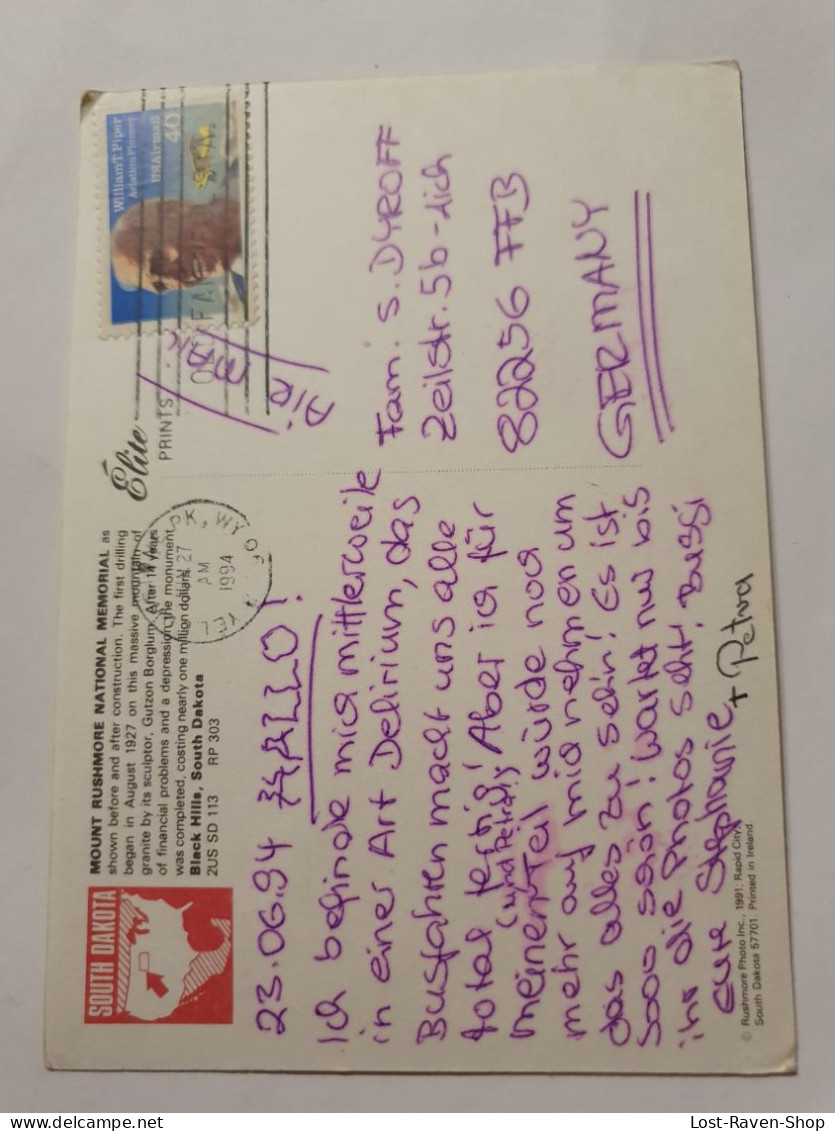 SOUTH DAKOTA
MOUNT RUSHMORE NATIONAL MEMORIAL as
shown before and after construction. The first drilling
began in August 1927 on this massive mountain of
granite by its sculptor, Gutzon Borglum. After 14 years
of financial problems and a depression the monument
was completed, costing nearly one million dollars.
Black Hills, South Dakota
2US SD 113 RP 303
Élite
PRINTS
William T. Piper
Aviation Pioneer
USAirmail
40
PK, WY
27
AM
1994
YEL
AIR MAIL
23.06.94 HALLO!
Ich befinde mich mittlerweile
in einer Art Delirium, das
Busfahren macht uns alle
total fertig! Aber ich für
(und Petra!)
meinen Teil würde noch
mehr auf mich nehmen um
das alles zu seh'n! Es ist
sooo schön! Wartet nur bis
ihr die Photos seht! Bussi
Eure Stephanie
+ Petra
Fam. S. DYROFF
Zeilstr. 5b-
82256 FFB
GERMANY
© Rushmore Photo Inc., 1991; Rapid City,
South Dakota 57701. Printed in Ireland.
Lost-Raven-Shop